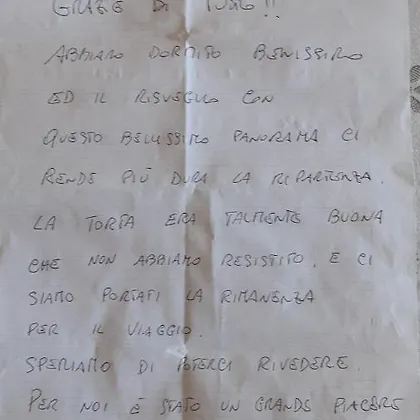 GRAZIE DI TUTTO!!
ABBIAMO DORMITO BENISSIMO
ED IL RISVEGLIO CON
QUESTO BELLISSIMO PANORAMA CI
RENDE PIÙ DURA LA RIPARTENZA.
LA TORTA ERA TALMENTE BUONA
CHE NON ABBIAMO RESISTITO, E CI
SIAMO PORTATI LA RIMANENZA
PER IL VIAGGIO.
SPERIAMO DI POTERCI RIVEDERE.
PER NOI È STATO UN GRANDE PIACERE